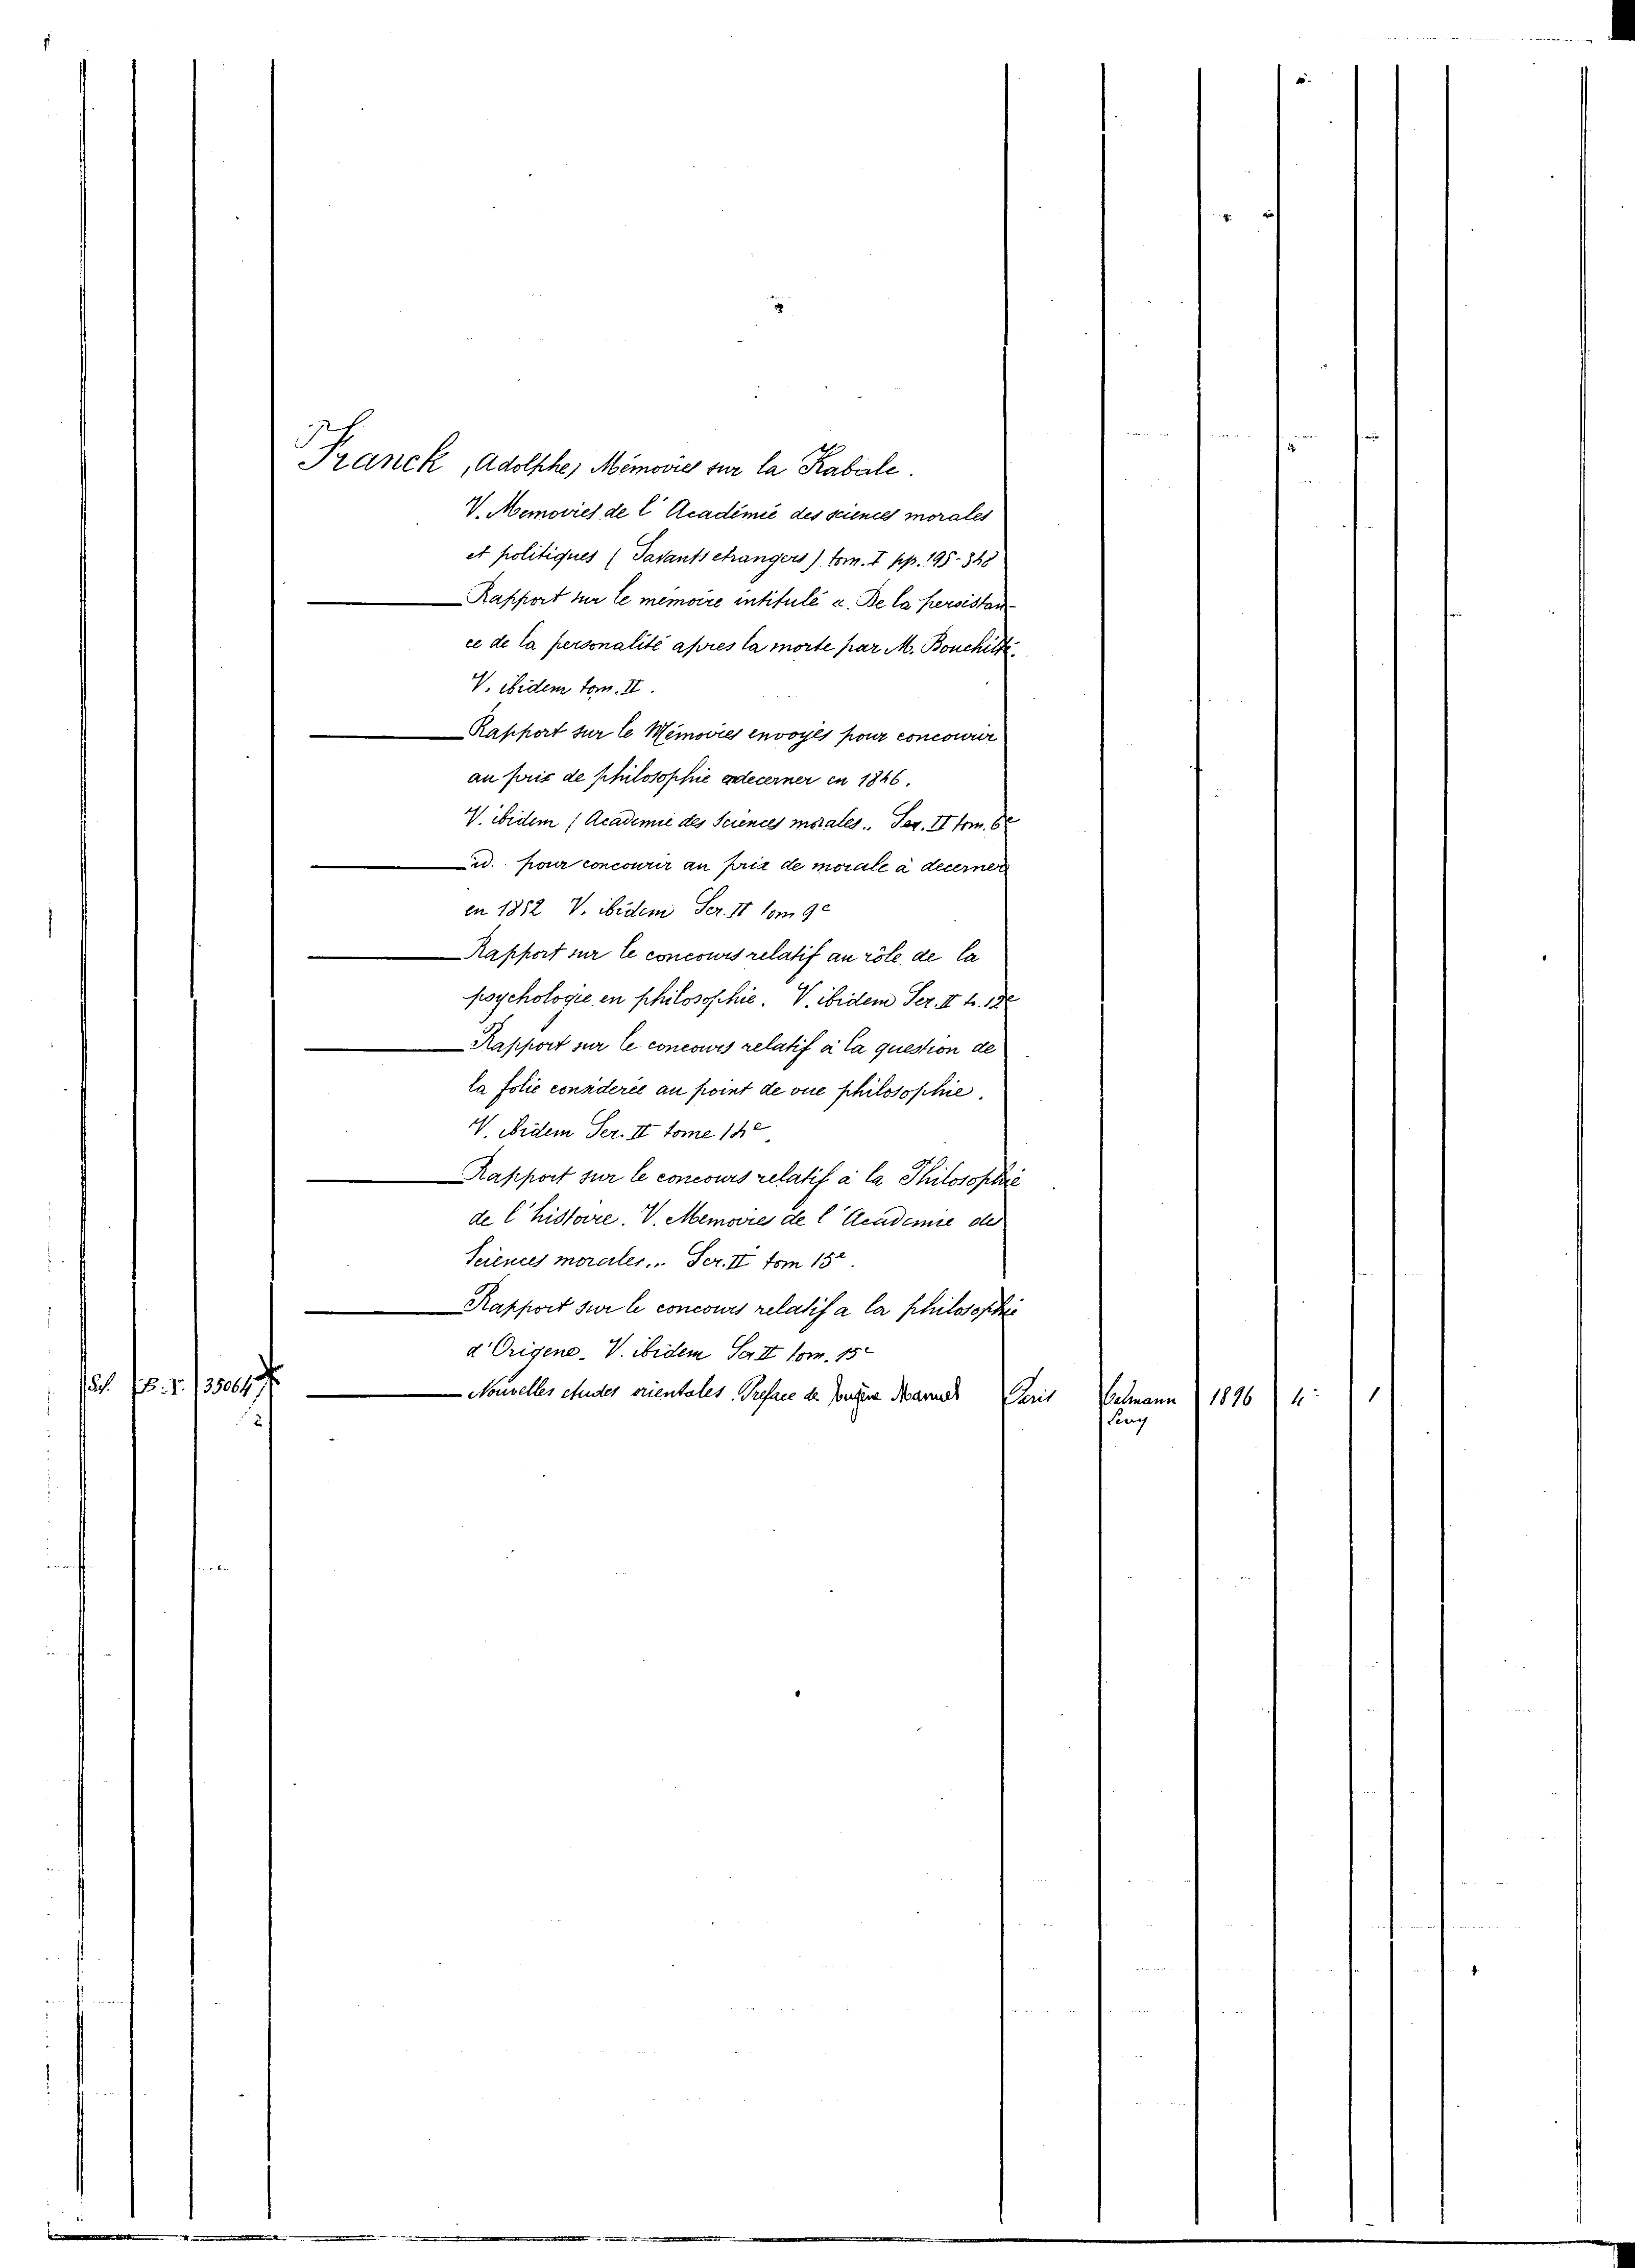 Franck, Adolphe, Mémovies sur la Kabale.
V. Memovies de l'Académie des sciences morales
et politiques (Savants etrangers) tom. I pp. 195-348
Rapport sur le mémoire intitulé „ De la persistan-
ce de la personalité apres la morte par M. Bouchitté.
V. ibidem tom. II.
Rapport sur le Mémovies envoyés pour concourir
au prix de philosophie a decerner en 1846.
V. ibidem (Academie des Sciences morales.. Ser. II tom. 6e
id. pour concourir au prix de morale à decerner
en 1852 V. ibidem Ser. II tom 9e
Rapport sur le concours relatif au rôle de la
psychologie en philosophie. V. ibidem Ser. II t. 12e
Rapport sur le concours relatif à la question de
la folie considerée au point de vue philosophie.
V. ibidem Ser. II tome 14e
Rapport sur le concours relatif à la Philosophie
de l'histoire. V. Memoires de l'Academie des
Sciences morales... Ser. II tom 15e.
Rapport sur le concours relatif a la philosophie
d'Origene. V. ibidem Ser II tom. 15e
B. J. 35064 Nouvelles etudes orientales. Preface de Eugène Manuel Paris Calmann 1896 4° 1
2 Levy